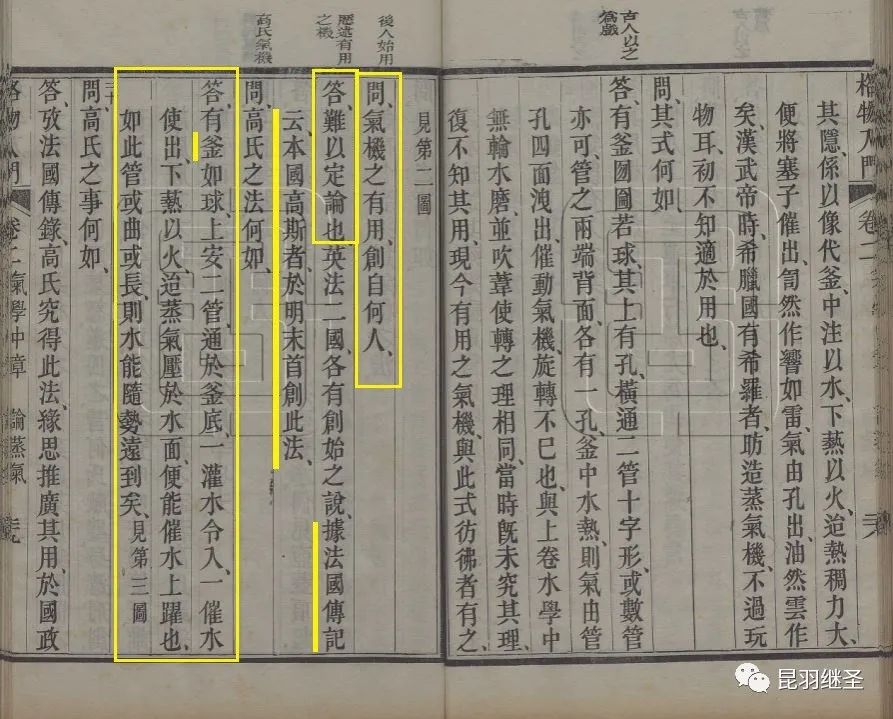 格物入門 卷二
古人以之為戲
其隱、係以像代釜、中注以水、下爇以火、迨熱稠力大、
便將塞子催出、訇然作響如雷、氣由孔出、油然雲作
矣、漢武帝時、希臘國有希羅者、昉造蒸氣機、不過玩
物耳、初不知適於用也、
問、其式何如、
答、有釜囫圇若球、其上有孔、橫通二管十字形、或數管
亦可、管之兩端背面、各有一孔、釜中水熱、則氣由管
孔四面洩出、催動氣機、旋轉不已也、與上卷水學中
無輪水磨、並吹葦使轉之理相同、當時既未究其理、
復不知其用、現今有用之氣機、與此式彷彿者有之、
見第二圖
後人始用
問、氣機之有用、創自何人、
歷述有用之機
答、難以定論也、英法二國、各有創始之說、據法國傳記
云、本國高斯者、於明末首創此法、
高氏氣機
問、高氏之法何如、
答、有釜如球、上安二管、通於釜底、一灌水令入、一催水
使出、下爇以火、迨蒸氣壓於水面、便能催水上躍也、
如此管或曲或長、則水能隨勢遠到矣、見第三圖
問、高氏之事何如、
答、攷法國傳錄、高氏究得此法、緣思推廣其用、於國政
格物入門 卷二 氣學中章 論蒸氣
昆羽继圣